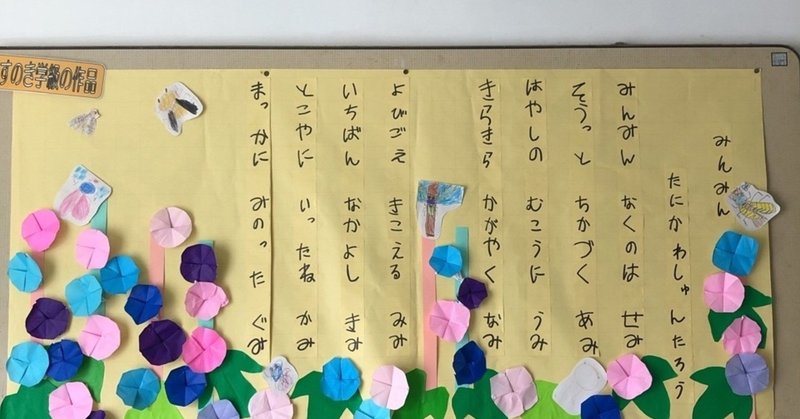 すのき学級の作品
みんみん
たにかわしゅんたろう
みんみん なくのは せみ
そうっと ちかづく あみ
はやしの むこうに うみ
きらきら かがやく なみ
よびごえ きこえる みみ
いちばん なかよし きみ
とこやに いったね かみ
まっかに みのった ぐみ